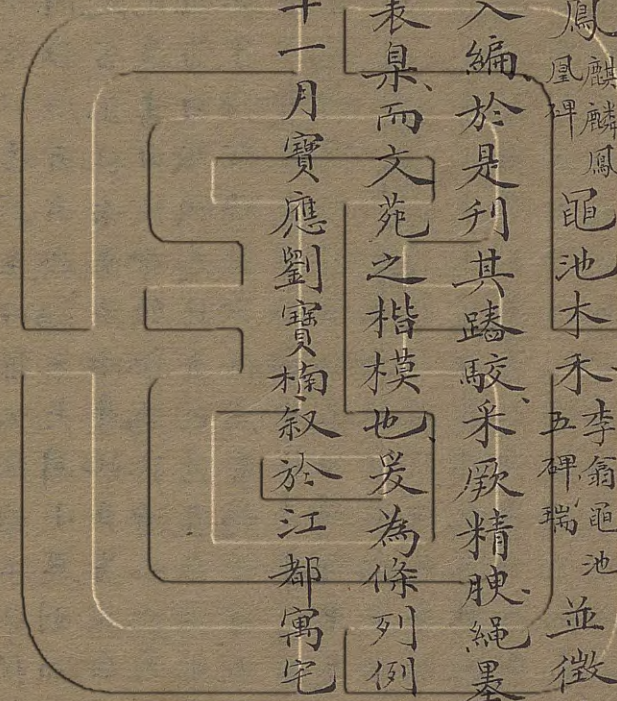 鳳麒麟鳳凰碑黽池木禾李翕黽池五碑瑞並徵
入編於是刋其踳駮采厥精腴繩墨
表臬而文苑之楷模也爰為條列例
十一月寶應劉寶楠叙於江都寓宅